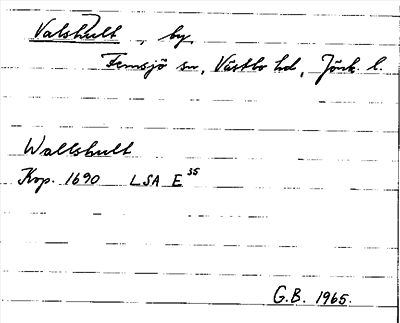 Valshult, by
Femsjö sn, Västbo hd, Jönk. l.
Wallshult
Kop. 1690 LSA E 35
G.B. 1965.